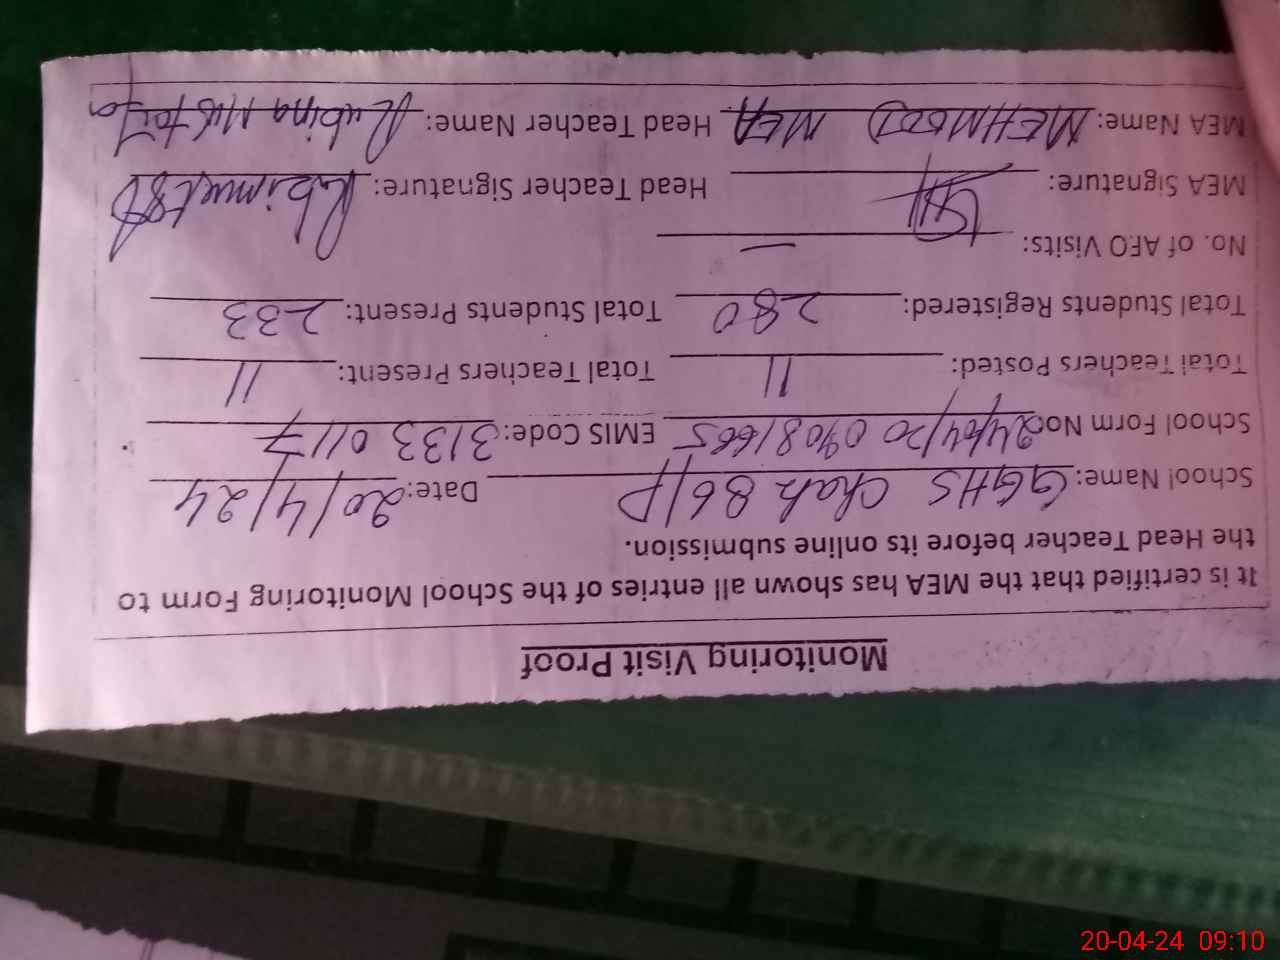 Monitoring Visit Proof
It is certified that the MEA has shown all entries of the School Monitoring Form to
the Head Teacher before its online submission.
School Name: GGHS Chah 86/P Date: 20/4/24
School Form No 2404/20 0908/665 EMIS Code: 3133 0117
Total Teachers Posted: 11 Total Teachers Present: 11
Total Students Registered: 280 Total Students Present: 233
No. of AEO Visits: —
MEA Signature: Head Teacher Signature:
MEA Name: MEHMOOD MEA Head Teacher Name: Rubina Mustafa
20-04-24 09:10